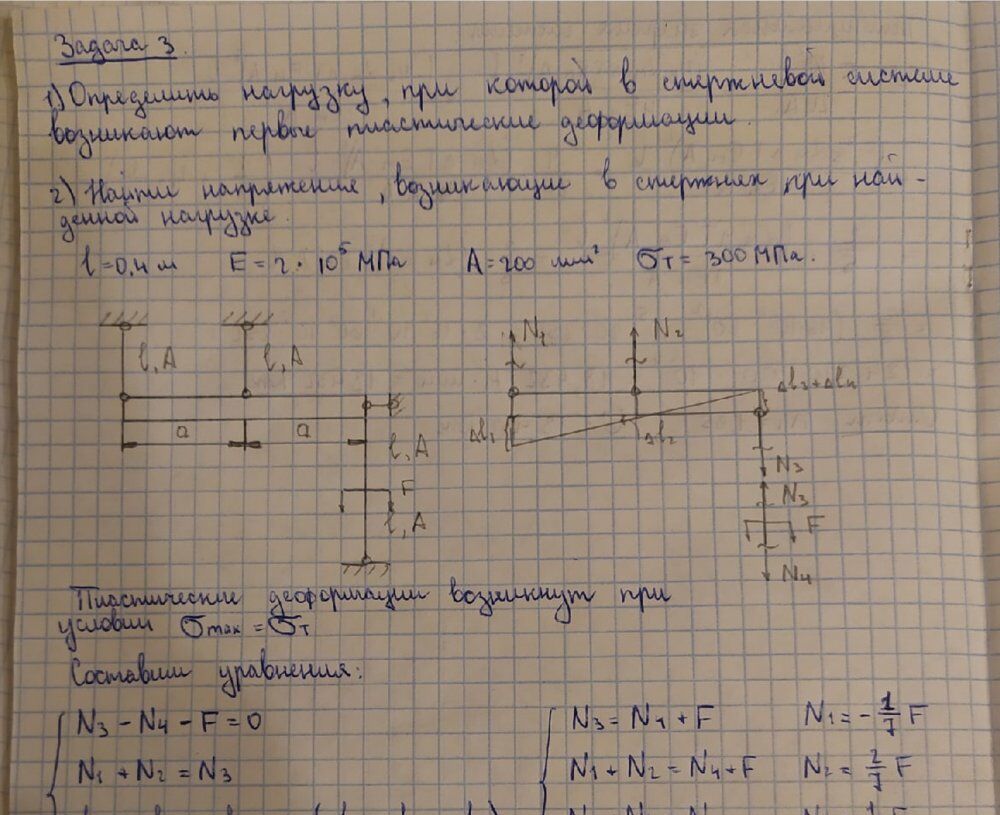 Задача 3.
1) Определить нагрузку, при которой в стержневой системе
возникают первые пластические деформации.
2) Найти напряжения, возникающие в стержнях при най-
денной нагрузке.
l=0,4 м E = 2 · 10⁵ МПа A = 200 мм² σт = 300 МПа.
l, A l, A
a a
l, A
F
l, A
N₁ N₂
Δl₃+Δl₄
Δl₁ Δl₂
N₃
N₃
F
N₄
Пластические деформации возникнут при
условии σmax = σт
Составим уравнения:
N₃ − N₄ − F = 0 N₃ = N₄ + F N₁ = − 1/7 F
N₁ + N₂ = N₃ N₁ + N₂ = N₄ + F N₂ = 2/7 F